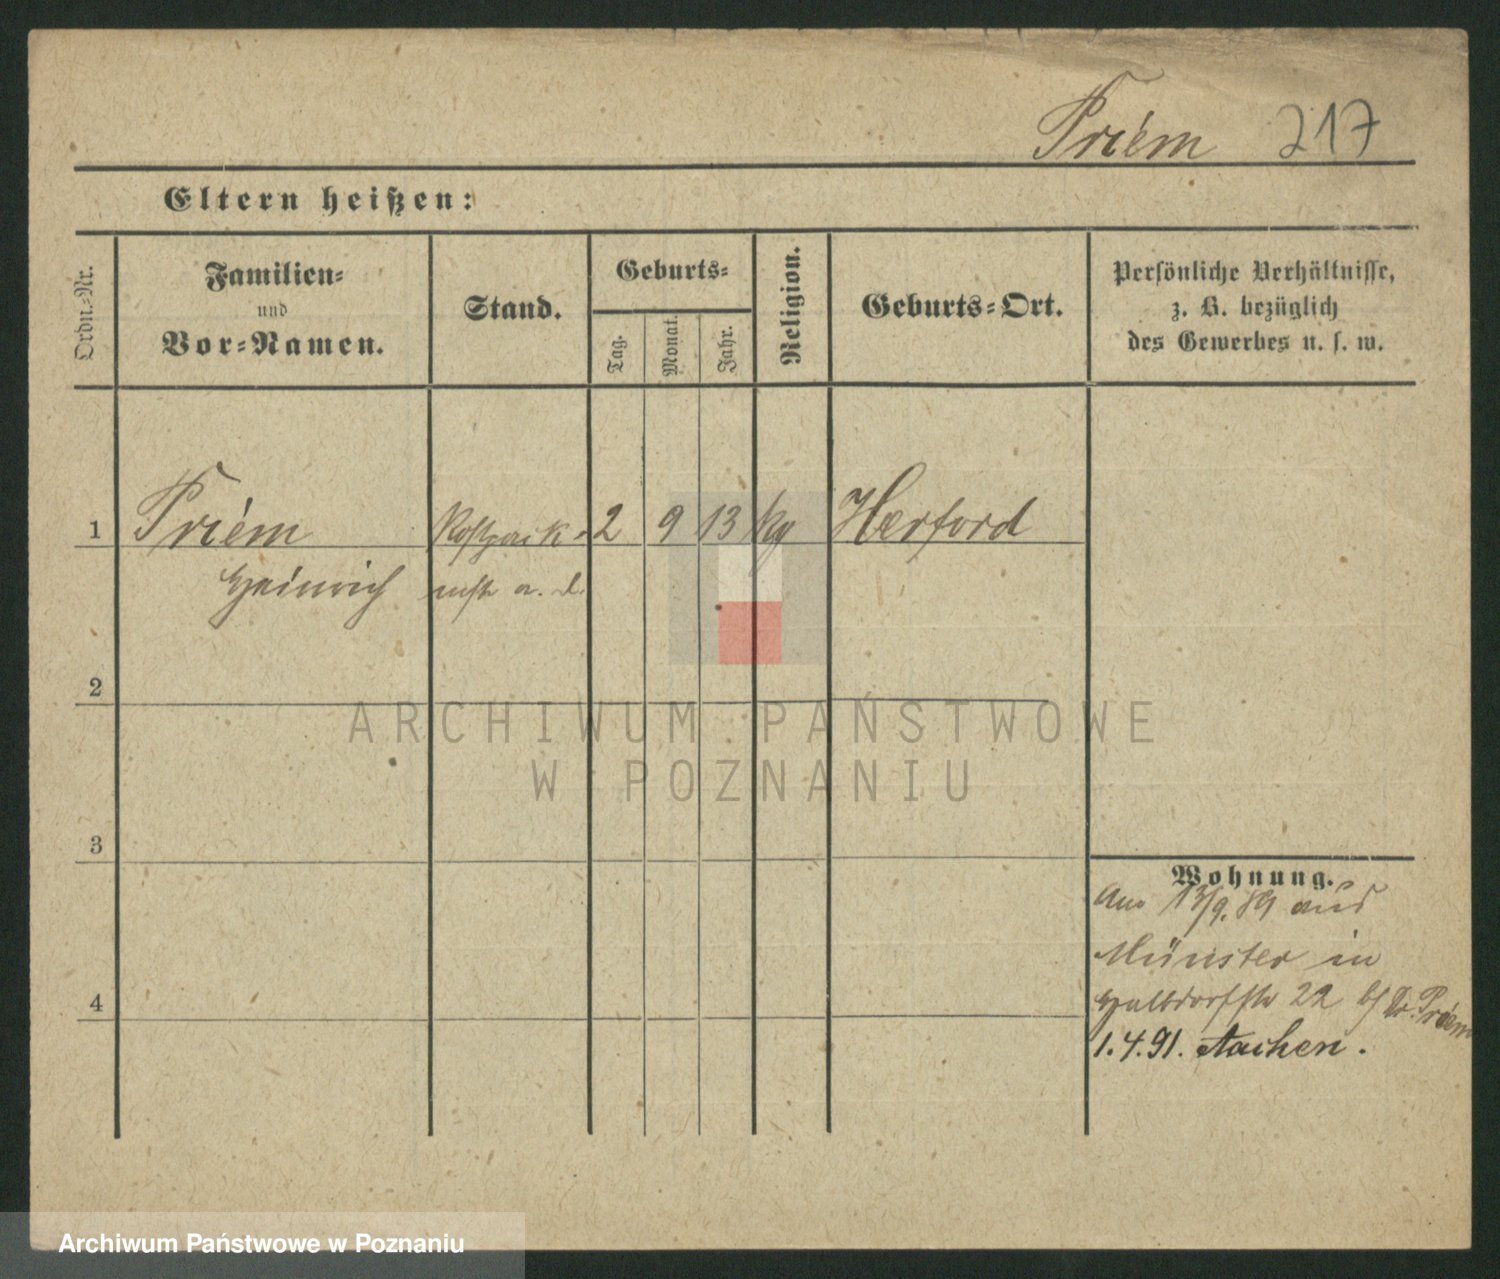 Priem 217
Eltern heißen:
Ordn.-Nr.
Familien-
und
Vor-Namen.
Stand.
Geburts-
Tag.
Monat.
Jahr.
Religion.
Geburts-Ort.
Persönliche Verhältnisse,
z. B. bezüglich
des Gewerbes u. s. w.
1 Priem 2 9 13 kg Herford
Heinrich mstr a. D.
2
3
4
Wohnung.
Am 13/9. 89 aus
Münster in
Halbdorfstr 22 b/ Dr. Priem
1.4.91. Aachen.
ARCHIWUM PAŃSTWOWE
W POZNANIU
Archiwum Państwowe w Poznaniu